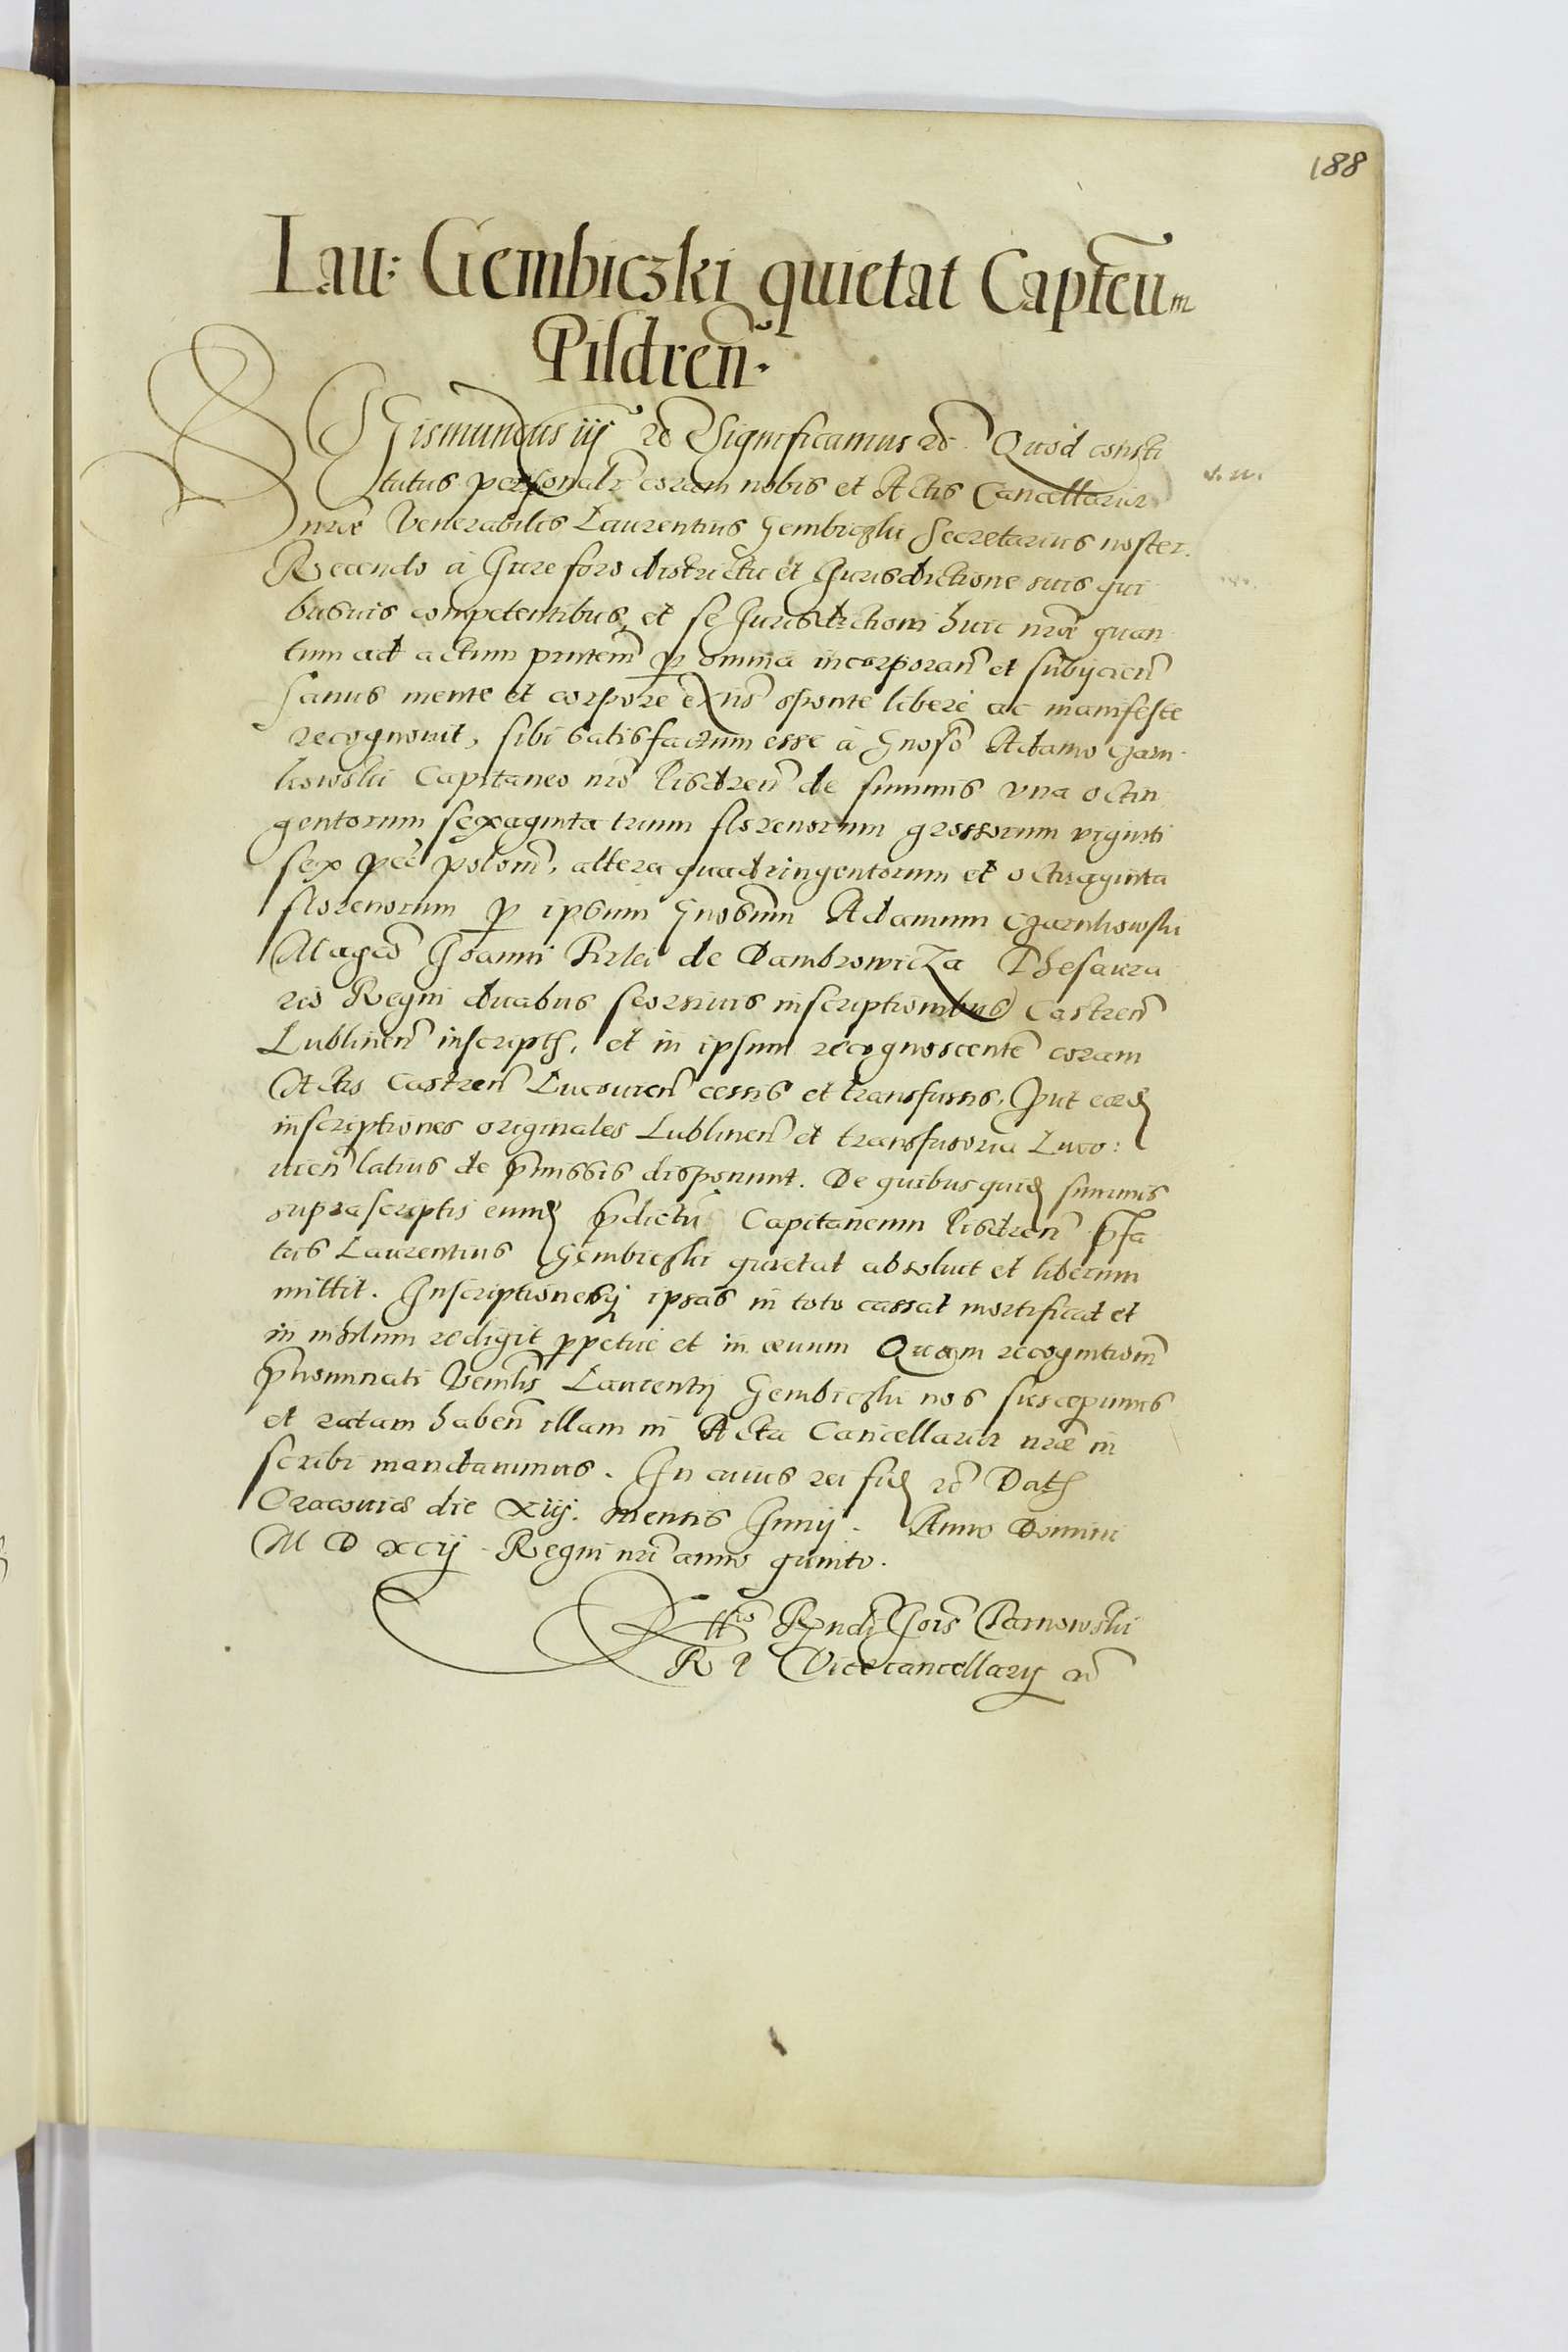 188
Lau: Gembiczki quietat Capteum
Pisdren̄.
SGismundus iij rc̄ Significamus rc̄. Quod consti
tutus personalr̄ coram nobis et Actis Cancellariæ
nr̄æ Venerabilis Laurentius Gembiczki Secretarius noster.
Recendo à Jure foro districtu et Jurisdictione suis qui
busuis competentibus, et se Jurisdictioni huic nr̄æ quan
tum ad actum pn̄tem p omnia incorporan̄ et subijcien̄
sanus mente et corpore exn̄s sponte libere ac manifeste
recognouit, sibi satisfactum esse à Gnoso Adamo Czarn
kowski Capitaneo nr̄o Pisdren̄ de summis vna octin
gentorum sexaginta trium florenorum grossorum viginti
sex pec̄ polon̄, altera quadringentorum et octuaginta
florenorum p ipsum Gnosum Adamum Czarnkowski
Magco Joanni Firlei de Dambrowicza Thesaura
rio Regni duabus seorsiuis inscriptionibus Castren̄
Lublinen̄ inscriptis, et in ipsum recognoscente coram
Actis Castren̄ Lucouien̄ cessis et transfusis, Put eæd
inscriptiones originales Lublinen̄ et transfusoria Luco:
uien̄ latius de p̄missis disponunt. De quibus quid summis
suprascriptis eund p̄dictū Capitaneum Pisdren̄ p̄fa
tus Laurentius Gembiczki quietat absoluit et liberum
mittit. Inscriptionesq ipsas in toto cassat mortificat et
in nihilum redigit ppetue et in æuum Quam recognitionē
p̄nominati Venlis Laurentij Gembiczki nos suscepimus
et ratam haben̄ illam in Acta Cancellariæ nr̄æ in
scribi mandauimus. In cuius rei fid rc̄ Dat
Cracouiæ die xiij. mensis Junij. Anno Domini
M D xcij. Regni nr̄i anno quinto.
Rtio Rn̄di Jois Tarnowski
R P Vicecancellarij rc̄